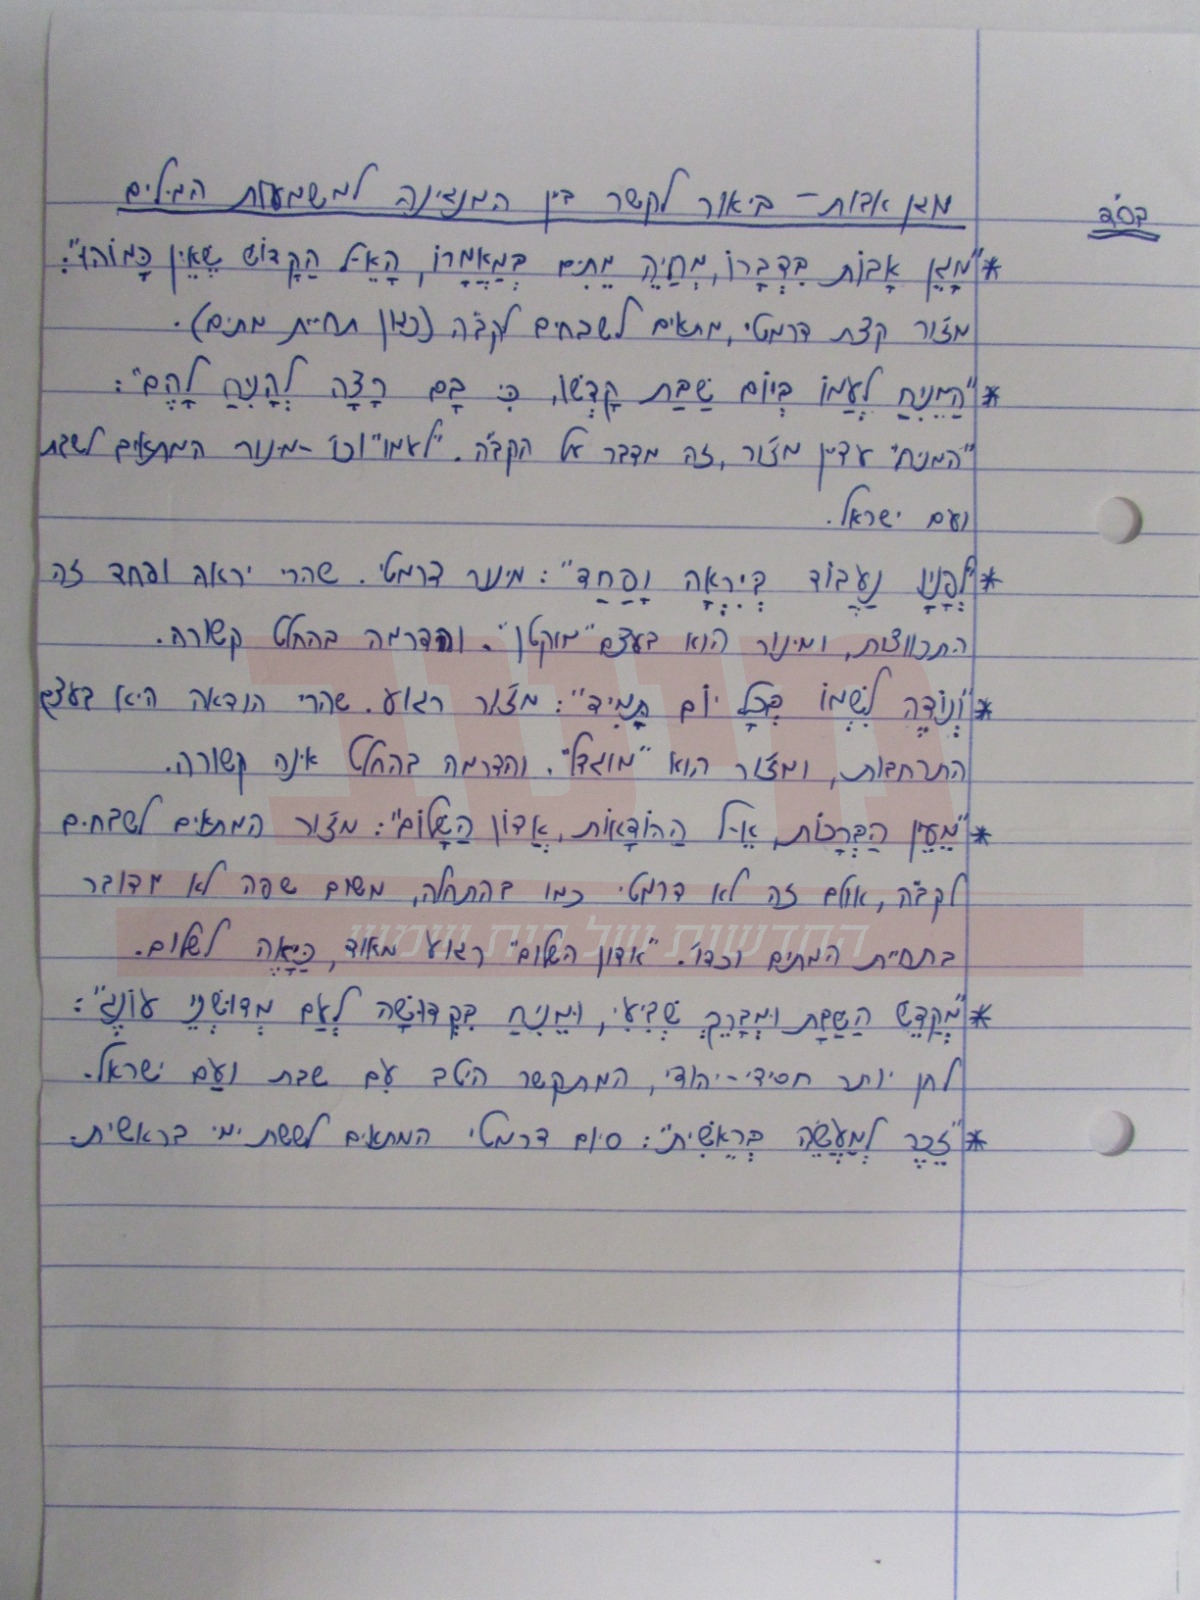 בס"ד
מגן אבות - ביאור לקשר בין המנגינה למשמעות המילים
*"מָגֵן אָבוֹת בִּדְבָרוֹ, מְחַיֵּה מֵתִים בְּמַאֲמָרוֹ, הָאֵ-ל הַקָּדוֹשׁ שֶׁאֵין כָּמוֹהוּ":
מז'ור קצת דרמטי, מתאים לשבחים לקב"ה (כגון תחיית מתים).
*"הַמֵּנִיחַ לְעַמּוֹ בְּיוֹם שַׁבַּת קָדְשׁוֹ, כִּי בָם רָצָה לְהָנִיחַ לָהֶם":
"המניח" עדיין מז'ור, זה מדבר על הקב"ה. "לעמו" וכו' - מינור המתאים לשבת
ועם ישראל.
*"לְפָנָיו נַעֲבוֹד בְּיִרְאָה וָפַחַד": מינור דרמטי. שהרי יראה ופחד זה
התכווצות, ומינור הוא בעצם "מוקטן". והדרמה בהחלט קשורה.
*"וְנוֹדֶה לִשְׁמוֹ בְּכָל יוֹם תָּמִיד": מז'ור רגוע. שהרי הודאה היא בעצם
התרחבות, ומז'ור הוא "מוגדל". והדרמה בהחלט אינה קשורה.
*"מֵעֵין הַבְּרָכוֹת, אֵ-ל הַהוֹדָאוֹת, אֲדוֹן הַשָּׁלוֹם": מז'ור המתאים לשבחים
לקב"ה, אולם זה לא דרמטי כמו בהתחלה, משום שפה לא מדובר
בתחיית המתים וכדו'. "אדון השלום" רגוע מאוד, כַּיָּאֶה לשלום.
*"מְקַדֵּשׁ הַשַּׁבָּת וּמְבָרֵךְ שְׁבִיעִי, וּמֵנִיחַ בִּקְדוּשָּׁה לְעַם מְדוּשְּׁנֵי עוֹנֶג":
לחן יותר חסידי-יהודי, המתקשר היטב עִם שבת ועַם ישראל.
*"זֵכֶר לְמַעֲשֵׂה בְּרֵאשִׁית": סיום דרמטי המתאים לששת ימי בראשית.
החדשות של בית שמש